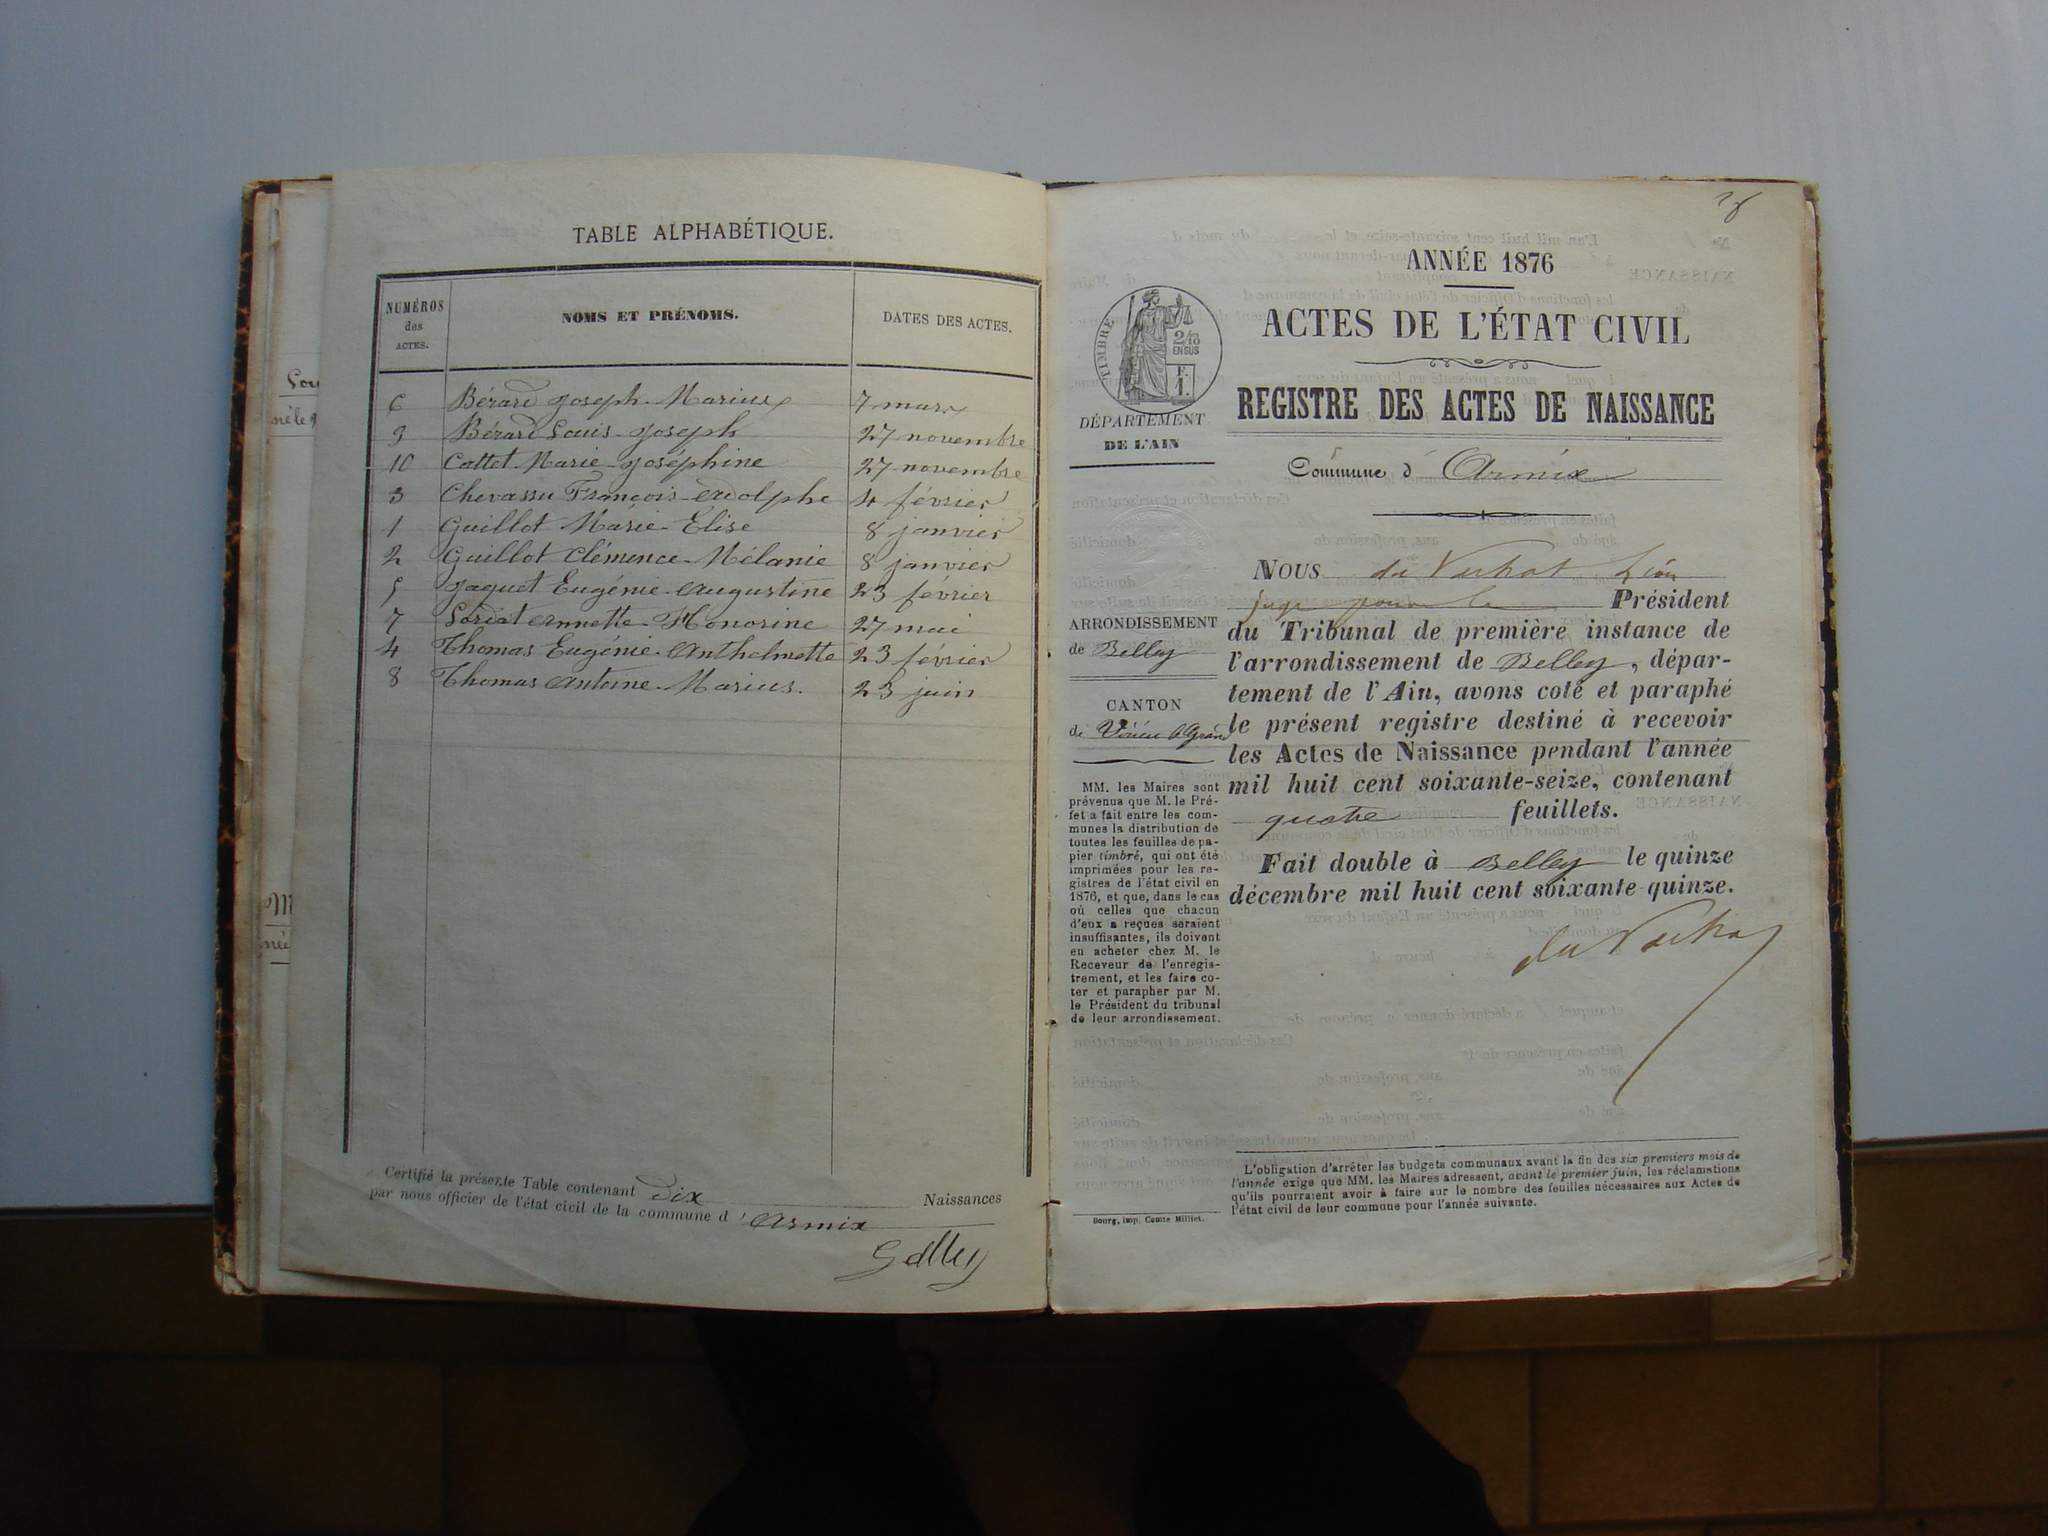 TABLE ALPHABÉTIQUE.
NUMÉROS des ACTES.
NOMS ET PRÉNOMS.
DATES DES ACTES.
6 Bérard Joseph-Marius 7 mars
9 Bérard Louis-Joseph 27 novembre
10 Cattet Marie-Joséphine 27 novembre
3 Chevassu François-Adolphe 4 février
1 Guillot Marie-Elise 8 janvier
2 Guillot Clémence-Mélanie 8 janvier
5 Jaquet Eugénie-Augustine 23 février
7 Annette-Honorine 27 mai
4 Thomas Eugénie-Anthelmette 23 février
8 Thomas Antoine-Marius. 23 juin
Certifié la présente Table contenant Dix Naissances
par nous officier de l'état civil de la commune d' Armix
ANNÉE 1876
ACTES DE L'ÉTAT CIVIL
REGISTRE DES ACTES DE NAISSANCE
Commune d' Armix
TIMBRE
2/10
EN SUS
DÉPARTEMENT
DE L'AIN
ARRONDISSEMENT
de Belley
CANTON
de Virieu le Grand
MM. les Maires sont
prévenus que M. le Pré-
fet a fait entre les com-
munes la distribution de
toutes les feuilles de pa-
pier timbré, qui ont été
imprimées pour les re-
gistres de l'état civil en
1876, et que, dans le cas
où celles que chacun
d'eux a reçues seraient
insuffisantes, ils doivent
en acheter chez M. le
Receveur de l'enregis-
trement, et les faire co-
ter et parapher par M.
le Président du tribunal
de leur arrondissement.
Bourg, imp. Comte Milliet.
NOUS du Léon
juge pour le Président
du Tribunal de première instance de
l'arrondissement de Belley, dépar-
tement de l'Ain, avons coté et paraphé
le présent registre destiné à recevoir
les Actes de Naissance pendant l'année
mil huit cent soixante-seize, contenant
quatre feuillets.
Fait double à Belley le quinze
décembre mil huit cent soixante-quinze.
L'obligation d'arrêter les budgets communaux avant la fin des six premiers mois de
l'année exige que MM. les Maires adressent, avant le premier juin, les réclamations
qu'ils pourraient avoir à faire sur le nombre des feuilles nécessaires aux Actes de
l'état civil de leur commune pour l'année suivante.